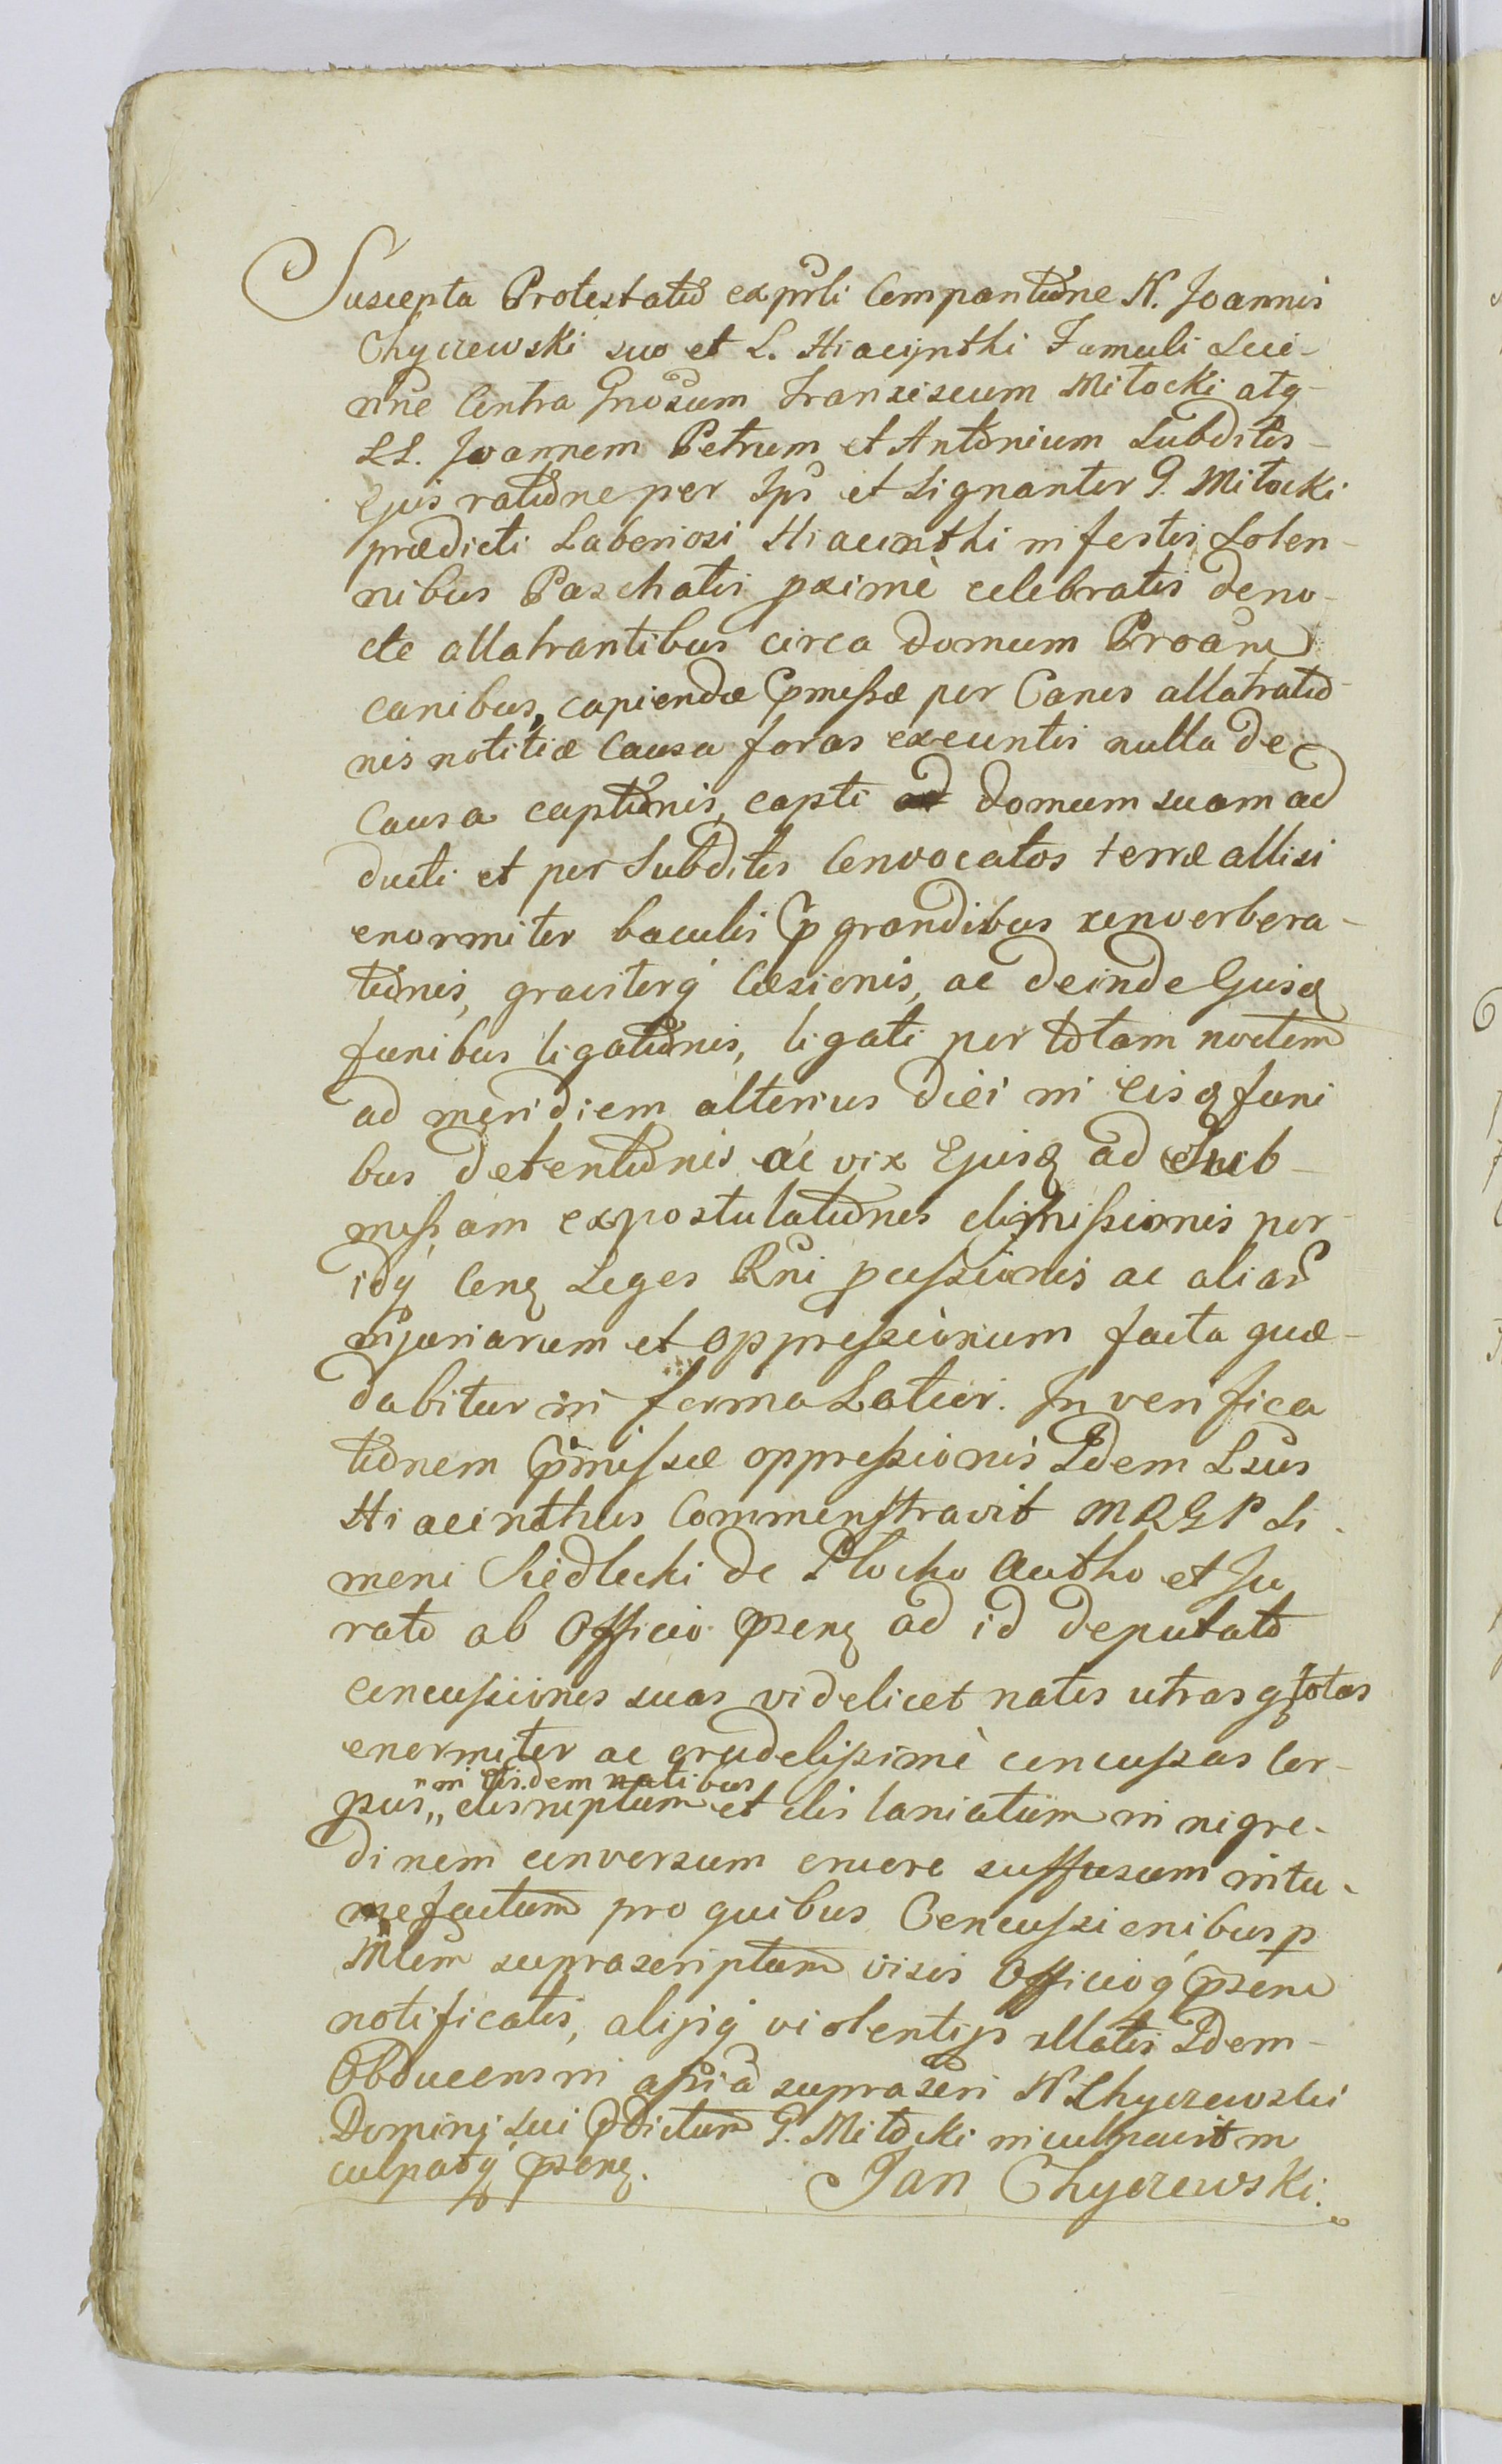 Suscepta Protestatio ex prsli Comparitione N. Joannis
Chyczewski suo et L. Hiacynthi Famuli sui
nne Contra Gnosum Franciscum Mitocki atq
LL. Joannem Petrum et Antonium Subditos
Ejus ratione per Ips et Signanter G. Mitocki
prædicti Laboriosi Hiacinthi in festis Solen-
nibus Paschatis pximè celebratis de no-
cte allatrantibus circa domum
canibus, capiendæ pmissæ per Canes allatratio-
nis notitiæ Causa foras exeuntis nulla de
Causa captionis, capti ad domum suam ad
ducti et per Subditos Convocatos terræ allisi
enormiter baculis prgrandibus converbera-
tionis, graviterq læsionis, ac deinde Ejusd
funibus ligationis, ligati per totam noctem
ad meridiem alterius diei in eisd funi
bus detentionis ac vix Ejusd ad Sub-
missam expostulationes dimissionis per
idq Con Leges Rni pcussionis ac aliar
injuriarum et oppressionum facta quæ
dabitur in forma Latior. In verifica
tionem pmissæ oppressionis Idem Lsus
Hiacinthus Commonstravit MRGP Si
meni Siedlecki de Plocho Autho et Ju
rato ab Officio psen ad id deputato
concussiones suas videlicet nates utrasq totas
enormiter ac crudelissimè concussas Cor-
"in eisdem natibus
pus,, disruptum et dislaniatum in nigre-
dinem conversum cruore suffusum intu-
mefactum pro quibus Concussionibus p
Mlem suprascriptum visis Officioq psen
notificatis, alijsq violentijs illatis Idem
Obducens in assia suprascri N Chyczewski
Domini sui pdictum G. Mitocki inculpavit in
culpatq psen.
Jan Chyczewski.